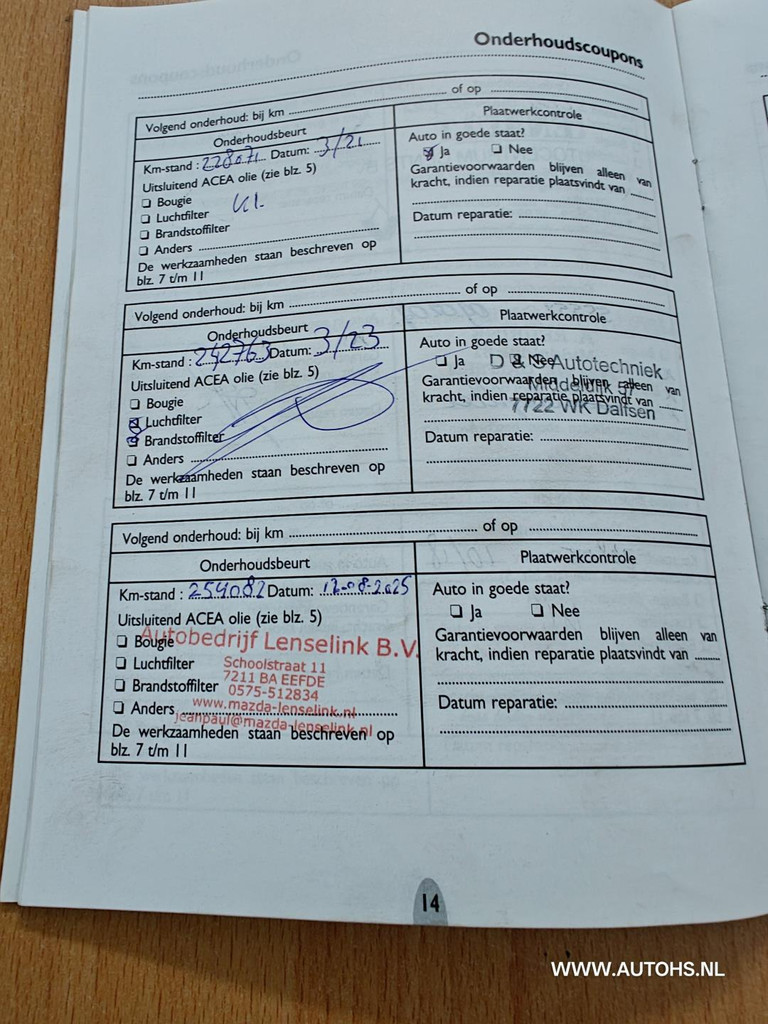 Onderhoudscoupons
Volgend onderhoud: bij km ........ of op ........
Onderhoudsbeurt
Plaatwerkcontrole
Km-stand : 228071 Datum: 3/21
Uitsluitend ACEA olie (zie blz. 5)
❑ Bougie
❑ Luchtfilter
❑ Brandstoffilter
❑ Anders ........
De werkzaamheden staan beschreven op
blz. 7 t/m 11
Auto in goede staat?
☑ Ja ❑ Nee
Garantievoorwaarden blijven alleen van
kracht, indien reparatie plaatsvindt van ........
Datum reparatie: ........
Volgend onderhoud: bij km ........ of op ........
Onderhoudsbeurt
Plaatwerkcontrole
Km-stand : 242763 Datum: 3/23
Uitsluitend ACEA olie (zie blz. 5)
❑ Bougie
☑ Luchtfilter
☑ Brandstoffilter
❑ Anders ........
De werkzaamheden staan beschreven op
blz. 7 t/m 11
Auto in goede staat?
❑ Ja ❑ Nee
Garantievoorwaarden blijven alleen van
kracht, indien reparatie plaatsvindt van ........
Datum reparatie: ........
D & S Autotechniek
Middeldijk 57
7722 WK Dalfsen
Volgend onderhoud: bij km ........ of op ........
Onderhoudsbeurt
Plaatwerkcontrole
Km-stand : 254082 Datum: 12-08-2025
Uitsluitend ACEA olie (zie blz. 5)
❑ Bougie
❑ Luchtfilter
❑ Brandstoffilter
❑ Anders ........
De werkzaamheden staan beschreven op
blz. 7 t/m 11
Autobedrijf Lenselink B.V.
Schoolstraat 11
7211 BA EEFDE
0575-512834
www.mazda-lenselink.nl
jeanpaul@mazda-lenselink.nl
Auto in goede staat?
❑ Ja ❑ Nee
Garantievoorwaarden blijven alleen van
kracht, indien reparatie plaatsvindt van ........
Datum reparatie: ........
14
WWW.AUTOHS.NL